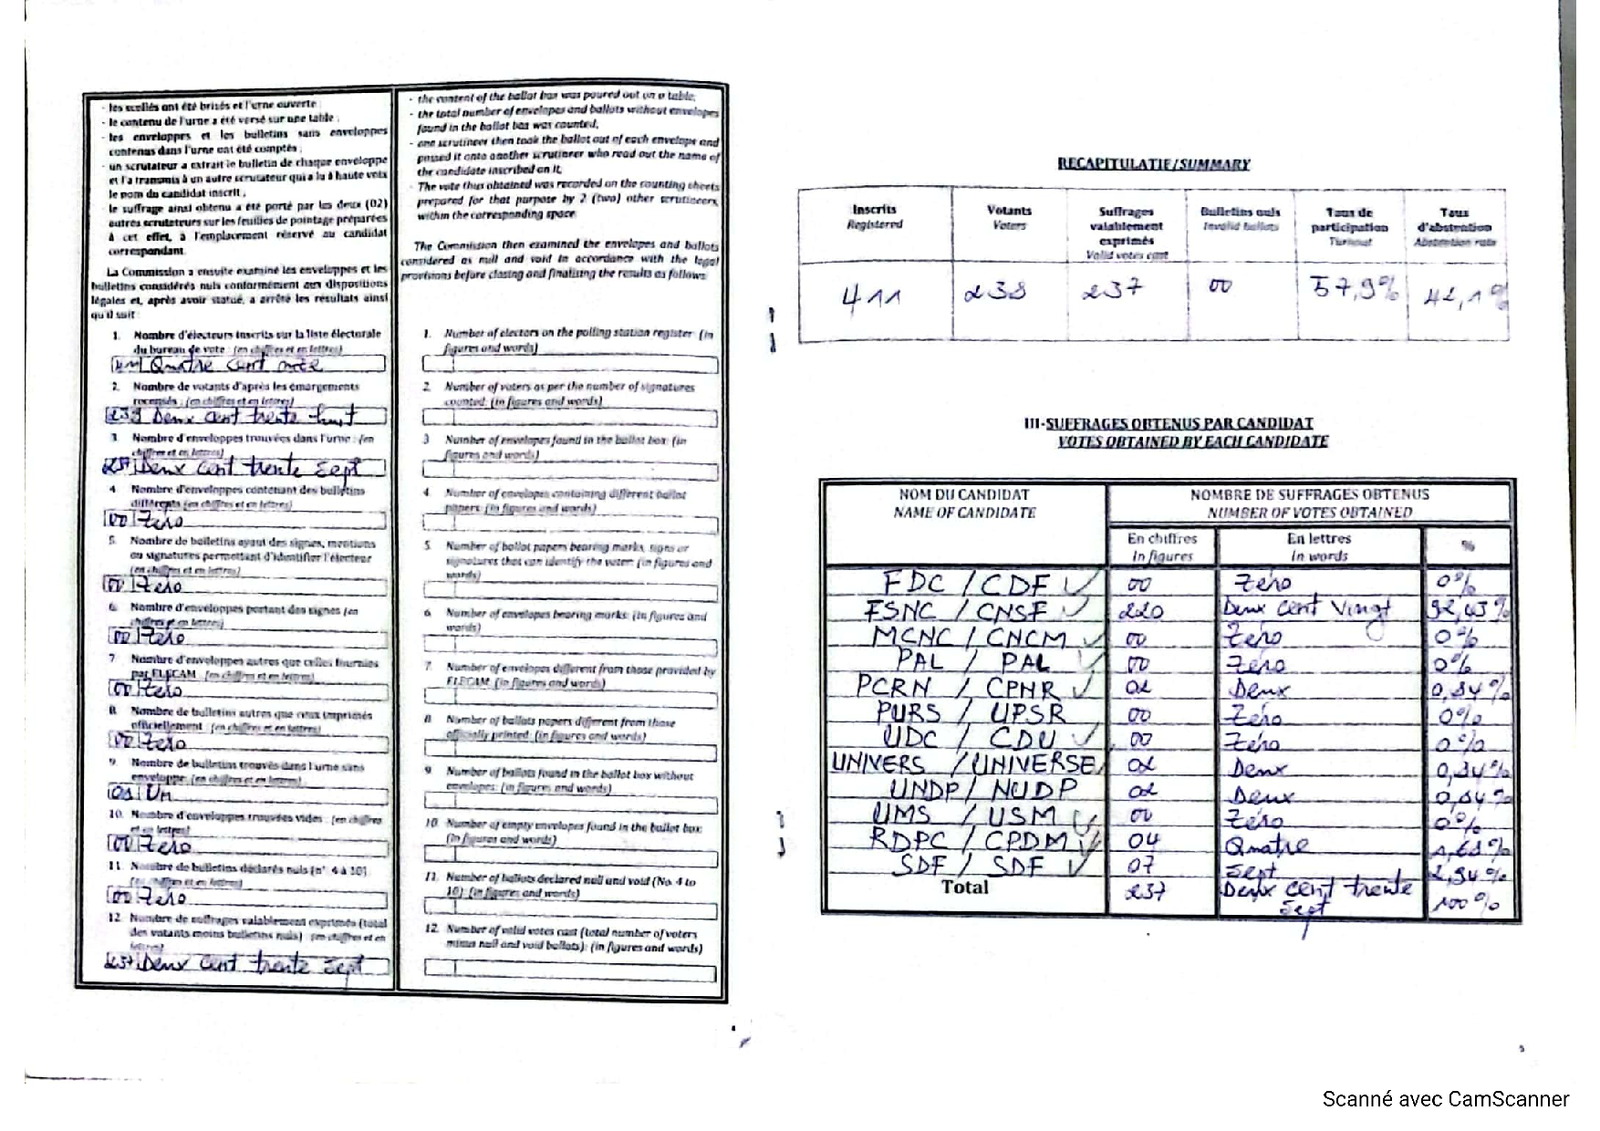 - les scellés ont été brisés et l'urne ouverte ;
- le contenu de l'urne a été versé sur une table ;
- les enveloppes et les bulletins sans enveloppes
contenus dans l'urne ont été comptés ;
- un scrutateur a extrait le bulletin de chaque enveloppe
et l'a transmis à un autre scrutateur qui a lu à haute voix
le nom du candidat inscrit ;
- le suffrage ainsi obtenu a été porté par les deux (02)
autres scrutateurs sur les feuilles de pointage préparées
à cet effet, à l'emplacement réservé au candidat
correspondant.
La Commission a ensuite examiné les enveloppes et les
bulletins considérés nuls conformément aux dispositions
légales et, après avoir statué, a arrêté les résultats ainsi
qu'il suit :
1. Nombre d'électeurs inscrits sur la liste électorale
du bureau de vote : (en chiffres et en lettres)
411 Quatre cent onze
2. Nombre de votants d'après les émargements
recensés : (en chiffres et en lettres)
238 Deux cent trente huit
3 Nombre d'enveloppes trouvées dans l'urne : (en
chiffres et en lettres)
237 Deux cent trente sept
4 Nombre d'enveloppes contenant des bulletins
différents (en chiffres et en lettres)
00 Zéro
5. Nombre de bulletins ayant des signes, mentions
ou signatures permettant d'identifier l'électeur
(en chiffres et en lettres)
00 Zéro
6. Nombre d'enveloppes portant des signes (en
chiffres et en lettres)
00 Zéro
7 Nombre d'enveloppes autres que celles fournies
par ELECAM (en chiffres et en lettres)
00 Zéro
8. Nombre de bulletins autres que ceux imprimés
officiellement : (en chiffres et en lettres)
00 Zéro
9. Nombre de bulletins trouvés dans l'urne sans
enveloppe: (en chiffres et en lettres)
01 Un
10. Nombre d'enveloppes trouvées vides : (en chiffres
et en lettres)
00 Zéro
11. Nombre de bulletins déclarés nuls (n° 4 à 10)
(en chiffres et en lettres)
00 Zéro
12. Nombre de suffrages valablement exprimés (total
des votants moins bulletins nuls) : (en chiffres et en
lettres)
237 Deux cent trente sept
- the content of the ballot box was poured out on a table;
- the total number of envelopes and ballots without envelopes
found in the ballot box was counted;
- one scrutineer then took the ballot out of each envelope and
passed it onto another scrutineer who read out the name of
the candidate inscribed on it;
- The vote thus obtained was recorded on the counting sheets
prepared for that purpose by 2 (two) other scrutineers,
within the corresponding space.
The Commission then examined the envelopes and ballots
considered as null and void in accordance with the legal
provisions before closing and finalising the results as follows:
1. Number of electors on the polling station register: (in
figures and words)
2. Number of voters as per the number of signatures
counted: (in figures and words)
3 Number of envelopes found in the ballot box: (in
figures and words)
4. Number of envelopes containing different ballot
papers: (in figures and words)
5. Number of ballot papers bearing marks, signs or
signatures that can identify the voter: (in figures and
words)
6 Number of envelopes bearing marks: (in figures and
words)
7. Number of envelopes different from those provided by
ELECAM: (in figures and words)
8 Number of ballots papers different from those
officially printed: (in figures and words)
9 Number of ballots found in the ballot box without
envelopes: (in figures and words)
10. Number of empty envelopes found in the ballot box:
(in figures and words)
11. Number of ballots declared null and void (No. 4 to
10): (in figures and words)
12. Number of valid votes cast (total number of voters
minus null and void ballots): (in figures and words)
RECAPITULATIF/SUMMARY
Inscrits
Registered
Votants
Voters
Suffrages
valablement
exprimés
Valid votes cast
Bulletins nuls
Invalid ballots
Taux de
participation
Turnout
Taux
d'abstention
Abstention rate
411 238 237 00 57,9% 42,1%
III-SUFFRAGES OBTENUS PAR CANDIDAT
VOTES OBTAINED BY EACH CANDIDATE
NOM DU CANDIDAT
NAME OF CANDIDATE
NOMBRE DE SUFFRAGES OBTENUS
NUMBER OF VOTES OBTAINED
En chiffres
In figures
En lettres
In words
%
FDC / CDF 00 Zéro 0%
FSNC / CNSF 220 Deux cent vingt 92,43%
MCNC / CNCM 00 Zéro 0%
PAL / PAL 00 Zéro 0%
PCRN / CPNR 02 Deux 0,84%
PURS / UPSR 00 Zéro 0%
UDC / CDU 00 Zéro 0%
UNIVERS / UNIVERSE 02 Deux 0,84%
UNDP / NUDP 02 Deux 0,84%
UMS / USM 00 Zéro 0%
RDPC / CPDM 04 Quatre 1,68%
SDF / SDF 07 Sept 2,94%
Total 237 Deux cent trente sept 100%
Scanné avec CamScanner